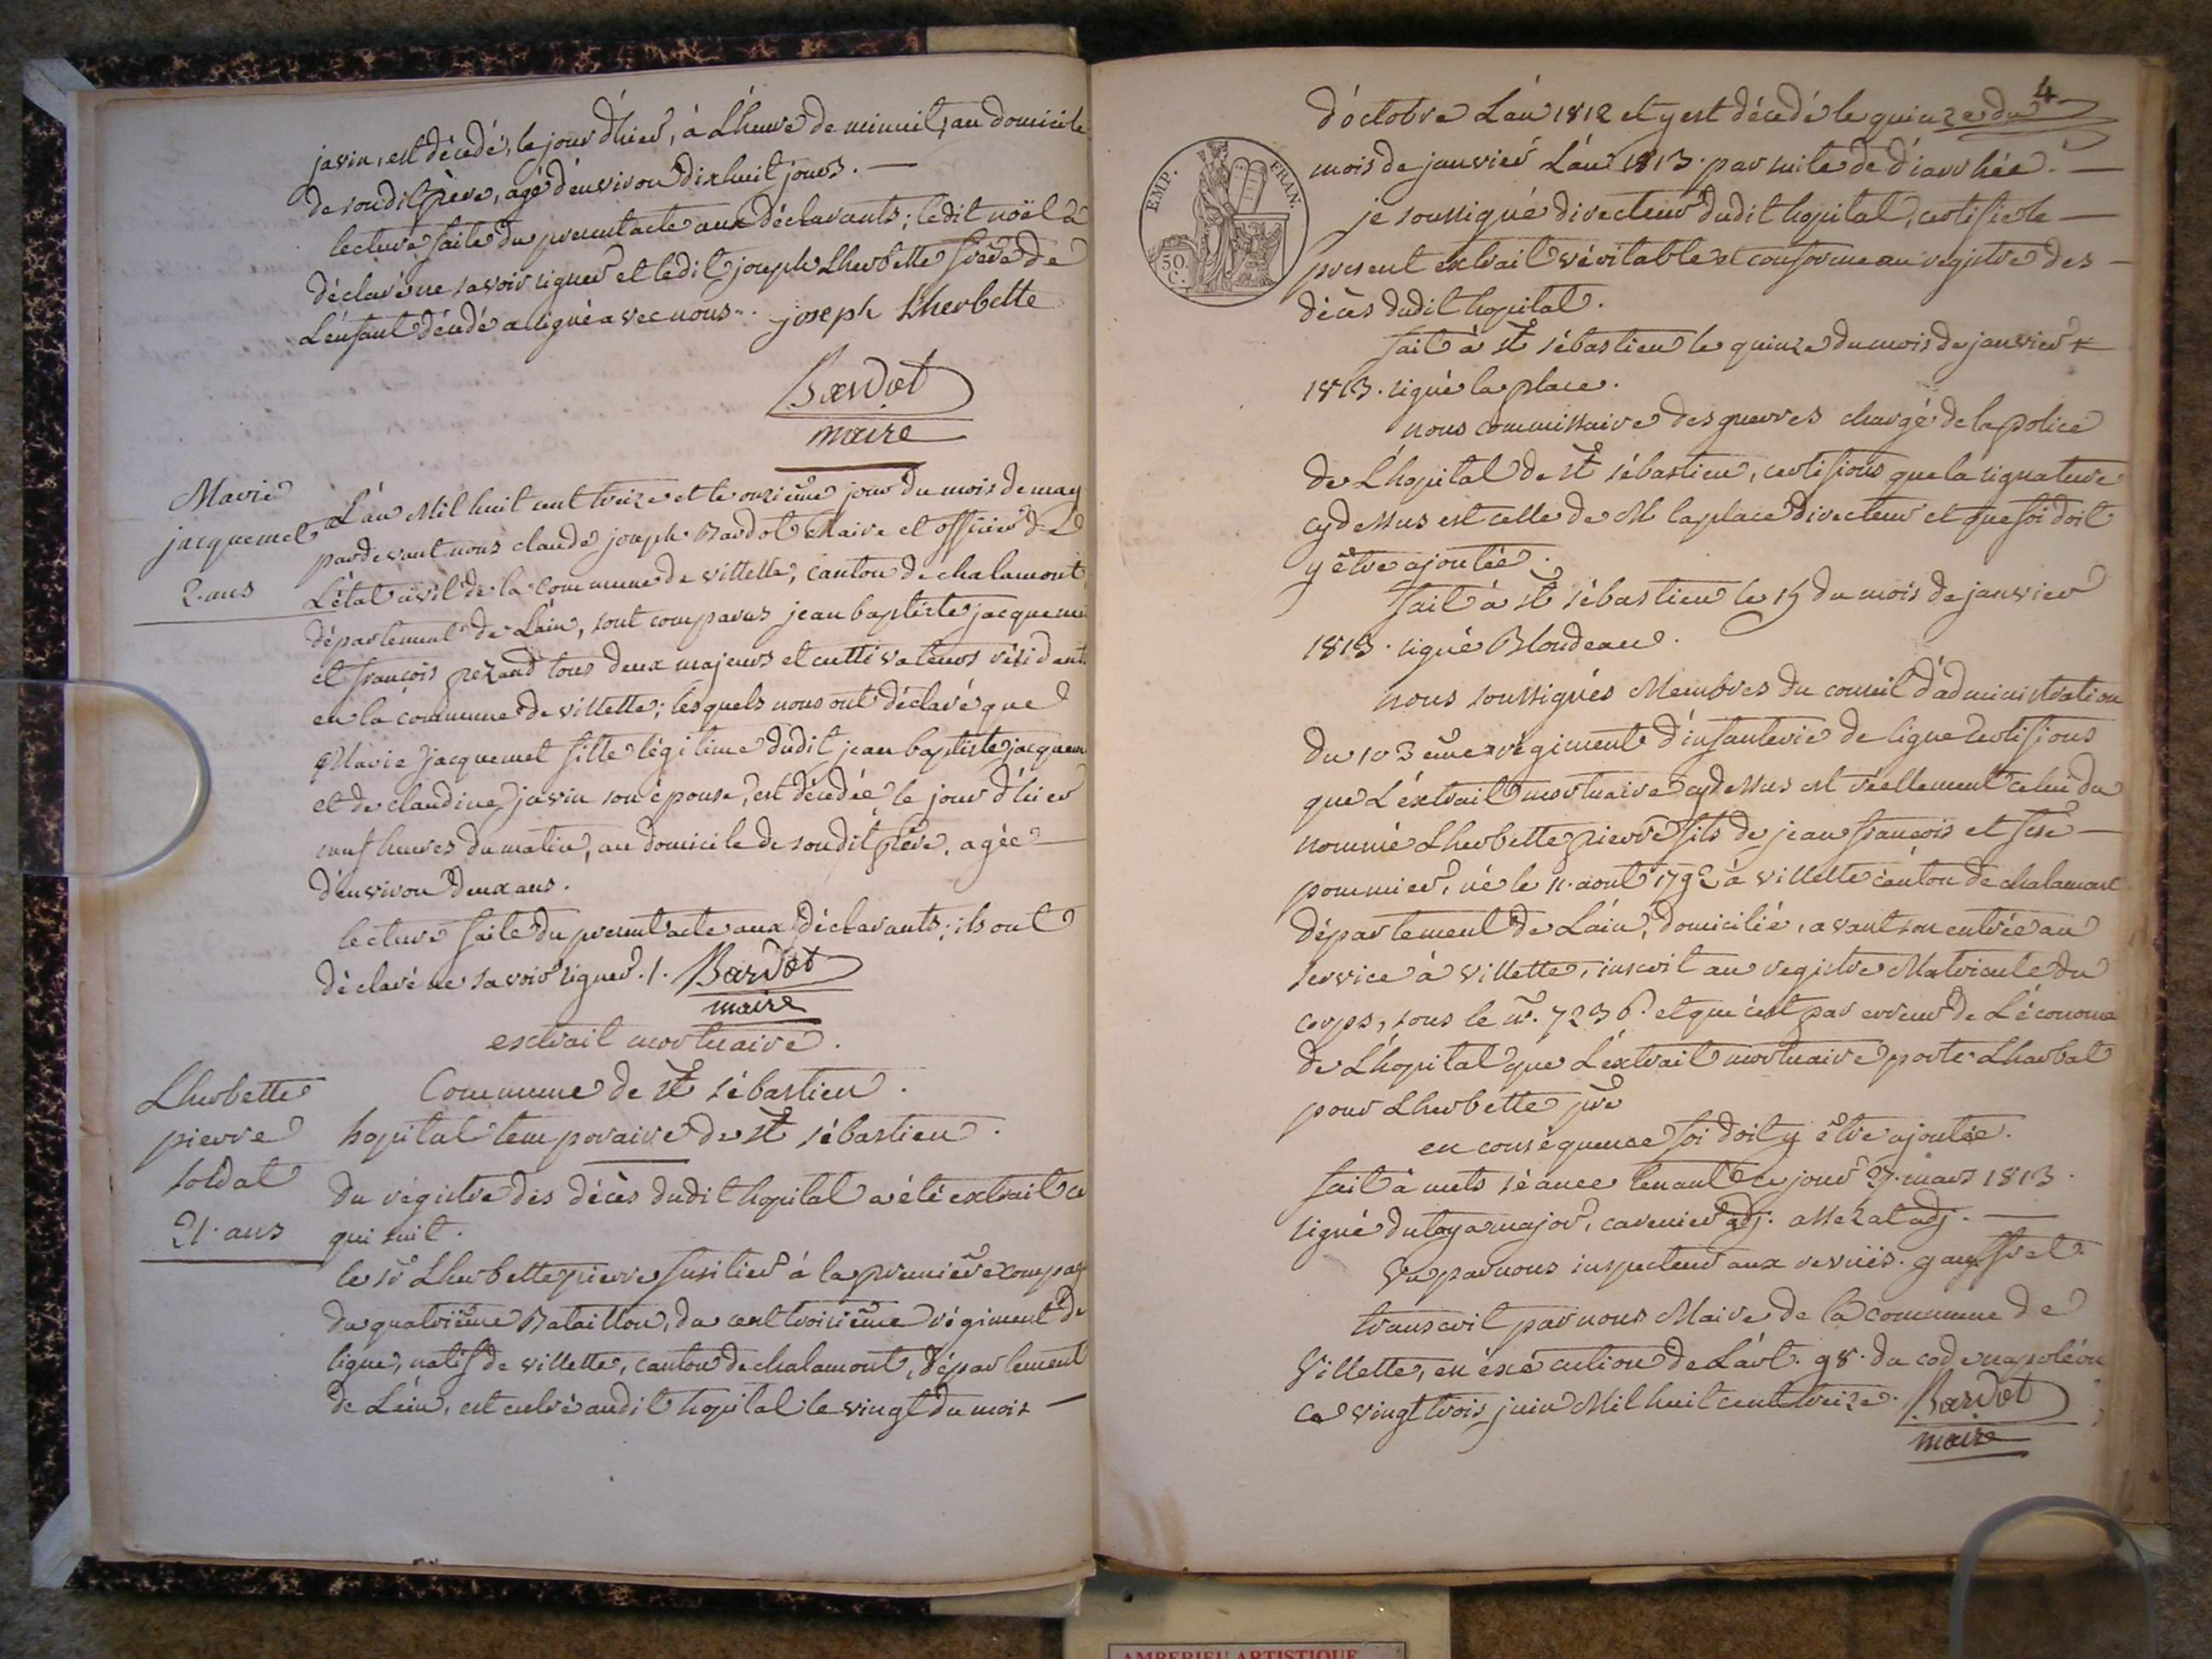 javin, est décedé, le jour d'hier, à L'heure de minuit, au domicile
de son dit père, agé d'environ dixhuit jours. —
lecture faite du present acte aux déclarants; ledit noël a
déclaré ne savoir signer et ledit joseph Lherbette frère de
L'enfant décedé a signé avec nous. joseph Lherbette
Bardot
maire
Marie
jacquemet
2. ans
L'an Mil huit cent treize et le onzième jour du mois de may
pardevant nous claude joseph Bardot Maire et officier de
L'état civil de la commune de villette, canton de chalamont
département de L'ain, sont comparus jean baptiste jacqueme
et françois pezand tous deux majeurs et cultivateurs résidant
en la commune de villette; lesquels nous ont déclaré que
Marie jacquemet fille légitime dudit jean baptiste jacquem
et de claudine javin son épouse, est décedée le jour d'hier
neuf heures du matin, au domicile de son dit père, agée —
d'environ deux ans.
lecture faite du present acte aux déclarants; ils ont
déclaré ne savoir signer. /. Bardot
maire
extrait mortuaire.
Lherbette
pierre
soldat
21. ans
Commune de st sébastien.
hopital temporaire de st sébastien.
du régistre des décès dudit hopital a été extrait ce
qui suit.
le sr Lherbette pierre fusilier à la première compag
du quatrième Bataillon, du cent troisième régiment de
ligne, natif de villette, canton de chalamont, département
de L'ain, est entré audit hopital le vingt du mois —
4
EMP. FRAN.
50
C.
d'octobre L'an 1812 et y est décedé le quinze du
mois de janvier L'an 1813. par suite de diarrhée. —
je soussigné directeur dudit hopital, certifie le —
present extrait véritable et conforme au registre des —
décès dudit hopital.
fait à st sébastien le quinze du mois de janvier
1813. signé laplace.
nous commissaire des guerres chargé de la police
de L'hopital de st sébastien, certifions que la signature
cydessus est celle de M laplace directeur et que foi doit
y être ajoutée.
fait à st sébastien le 15 du mois de janvier
1813. signé Blondeau.
nous soussignés Membres du conseil d'administration
du 103 eme régiment d'infanterie de ligne certifions
que L'extrait mortuaire cydessus est réellement celui du
nommé Lherbette pierre fils de jean françois et fse —
pommier, né le 11. aout 1792 à villette canton de chalamont
département de L'ain, domicilié, avant son entrée au
service à villette, inscrit au registre Matricule du
corps, sous le n°. 7236. et que c'est par erreur de L'économe
de L'hopital que L'extrait mortuaire porte Lharbat
pour Lherbette pre
en conséquence foi doit y être ajoutée.
fait à mets séance tenant ce jour 27. mars 1813.
signé major, adj. adj. —
Vu par nous inspecteur aux revües.
transcrit par nous Maire de la commune de
Villette, en éxécution de L'art. 98. du code napoléon
ce vingt trois juin Mil huit cent treize. Bardot
maire
AMBERIEU ARTISTIQUE